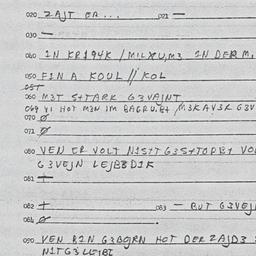 020 ZAJT ER... 021 —
030 —
040 IN KR194K / MILXU,M3 IN DER M,
050 FIN A KOUL // KOL
051
060 M3T S+TARK G3VAJNT
069 VI HOT M3N IM BAGRU.B+ M3KAV3R G3V
070 Ø
071 Ø
080 VEN ER VOLT NIS+T G3S+TORB1 VO
G3VEJN LEJB3DIK
081 +
082 + 083 — BUT G3VEJ
084 Ø
090 VEN R2N G3BOJRN HOT DER ZAJD3
NIT G3LEJBT